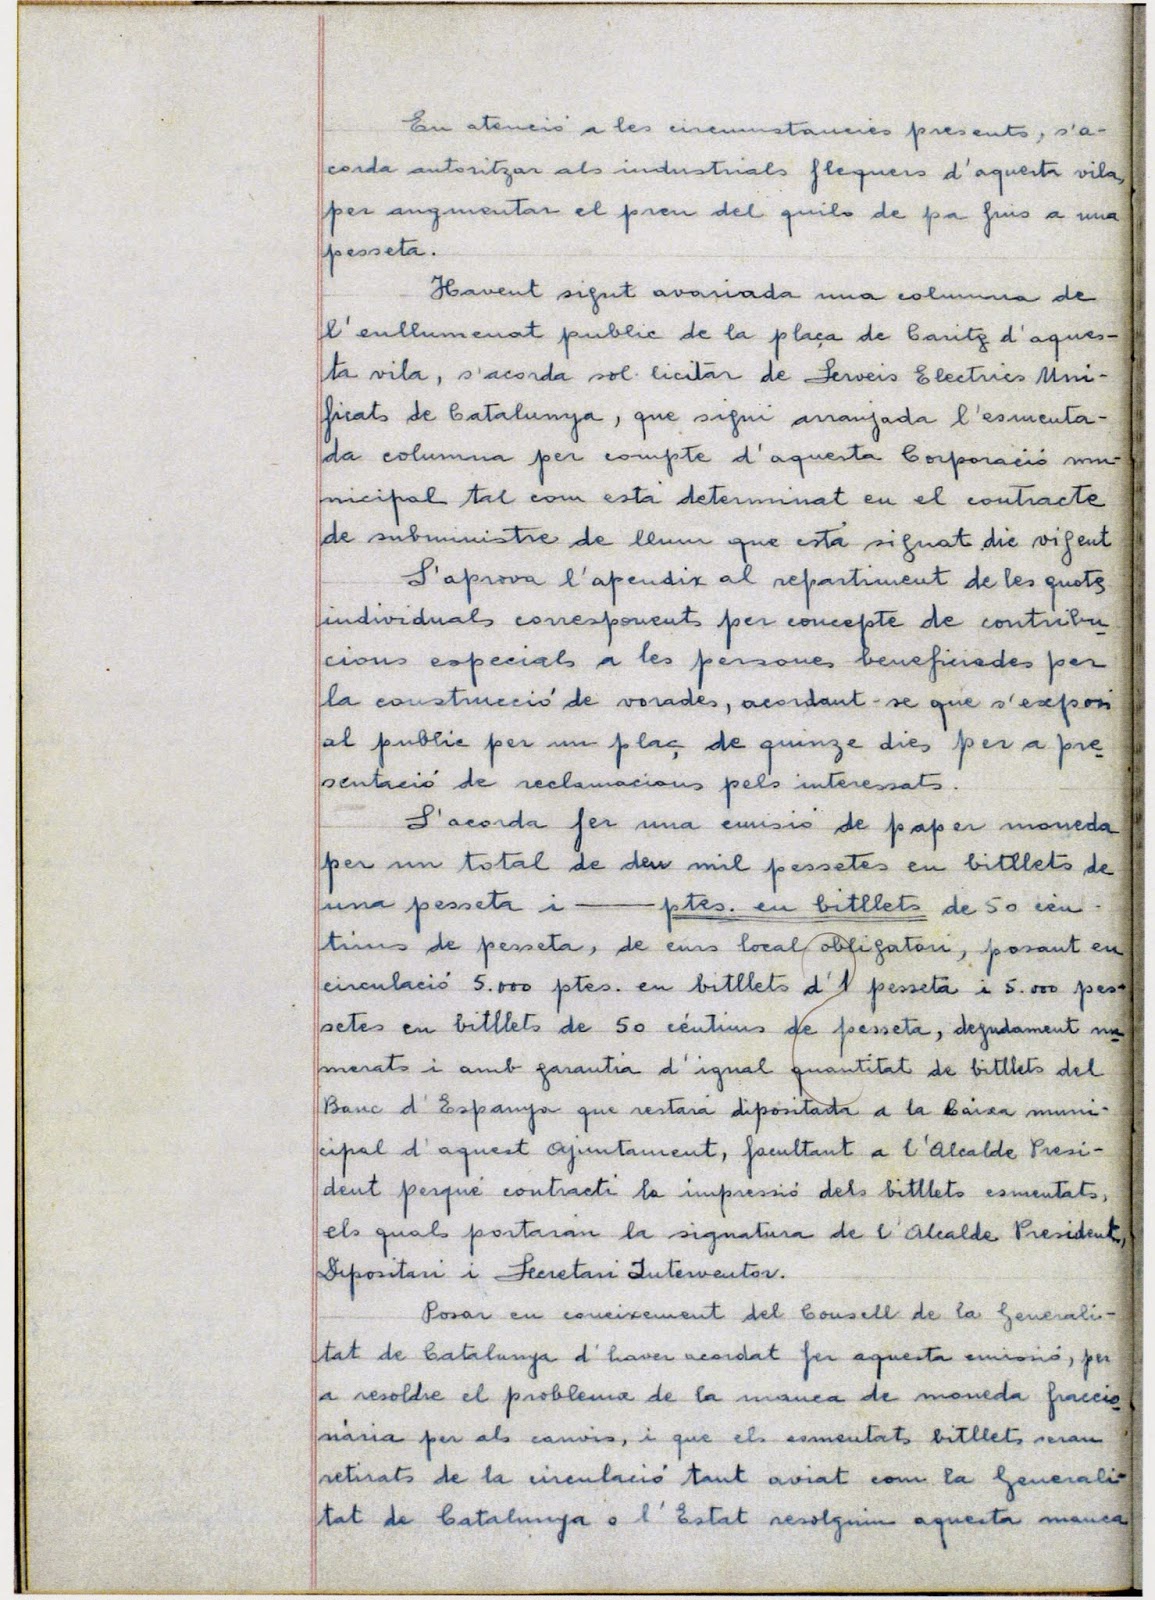 En atenció a les circumstancies presents, s'a-
corda autoritzar als industrials flequers d'aquesta vila,
per augmentar el preu del quilo de pa fins a una
pesseta.
Havent sigut avariada una columna de
l'enllumenat public de la plaça de Caritg d'aques-
ta vila, s'acorda sol·licitar de Serveis Electrics Uni-
ficats de Catalunya, que sigui arranjada l'esmenta-
da columna per compte d'aquesta Corporació mu-
nicipal tal com està determinat en el contracte
de subministre de llum que està signat die vigent
S'aprova l'apendix al repartiment de les quotes
individuals corresponents per concepte de contribu-
cions especials a les persones beneficiades per
la construcció de vorades, acordant-se que s'exposi
al public per un plaç de quinze dies per a pre-
sentació de reclamacions pels interessats.
S'acorda fer una emisió de paper moneda
per un total de deu mil pessetes en bitllets de
una pesseta i —— ptes. en bitllets de 50 cèn-
tims de pesseta, de curs local obligatori, posant en
circulació 5.000 ptes. en bitllets d'1 pesseta i 5.000 pes-
setes en bitllets de 50 céntims de pesseta, degudament nu-
merats i amb garantia d'igual quantitat de bitllets del
Banc d'Espanya que restarà dipositada a la Caixa muni-
cipal d'aquest Ajuntament, facultant a l'Alcalde Presi-
dent perqué contracti la impressió dels bitllets esmentats,
els quals portaràn la signatura de l'Alcalde President,
Dipositari i Secretari Interventor.
Posar en coneixement del Consell de la Generali-
tat de Catalunya d'haver acordat fer aquesta emissió, per
a resoldre el problema de la manca de moneda fraccio-
nària per als canvis, i que els esmentats bitllets seran
retirats de la circulació tant aviat com la Generali-
tat de Catalunya o l'Estat resolguin aquesta manca